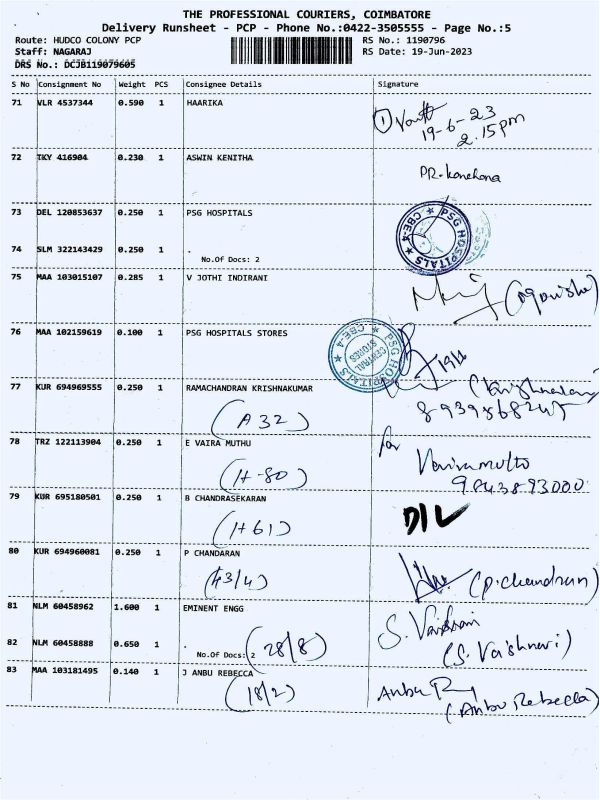 THE PROFESSIONAL COURIERS, COIMBATORE
Delivery Runsheet - PCP - Phone No.:0422-3505555 - Page No.:5
Route: HUDCO COLONY PCP RS No.: 1190796
Staff: NAGARAJ RS Date: 19-Jun-2023
DRS No.: DCJB119079605
S No Consignment No Weight PCS Consignee Details Signature
71 VLR 4537344 0.590 1 HAARIKA
19-6-23
2.15pm
72 TKY 416904 0.230 1 ASWIN KENITHA
PR.
73 DEL 120853637 0.250 1 PSG HOSPITALS
PSG HOSPITALS CBE-4
74 SLM 322143429 0.250 1 .
No.Of Docs: 2
75 MAA 103015107 0.285 1 V JOTHI INDIRANI
76 MAA 102159619 0.100 1 PSG HOSPITALS STORES
PSG HOSPITALS CBE-4
CENTRAL STORES
77 KUR 694969555 0.250 1 RAMACHANDRAN KRISHNAKUMAR
(A 32)
78 TRZ 122113904 0.250 1 E VAIRA MUTHU
for
(H-80) Vairamutto
9843893000
79 KUR 695180501 0.250 1 B CHANDRASEKARAN
(H61) D/L
80 KUR 694960081 0.250 1 P CHANDARAN
(43/4) (P.chandran)
81 NLM 60458962 1.600 1 EMINENT ENGG
S. Vaishnavi
82 NLM 60458888 0.650 1 .
No.Of Docs: 2 (28/8) (S. Vaishnavi)
83 MAA 103181495 0.140 1 J ANBU REBECCA
(18/2) Anbu R
(Anbu Rebecca)